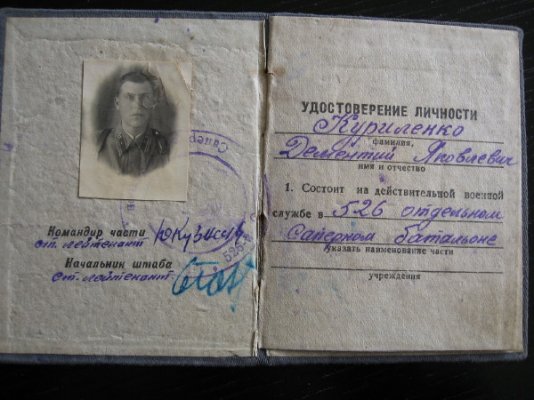 Командир части
ст. лейтенант
Начальник штаба
ст. лейтенант
526
УДОСТОВЕРЕНИЕ ЛИЧНОСТИ
Куриленко
фамилия,
Дементий Яковлевич
имя и отчество
1. Состоит на действительной военной
службе в 526 отдельном
Саперном батальоне
указать наименование части
учреждения